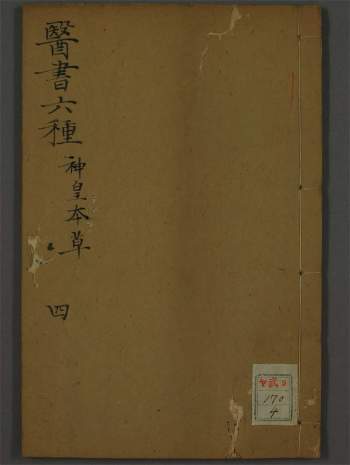 醫書六種
神皇本草
四
170
4